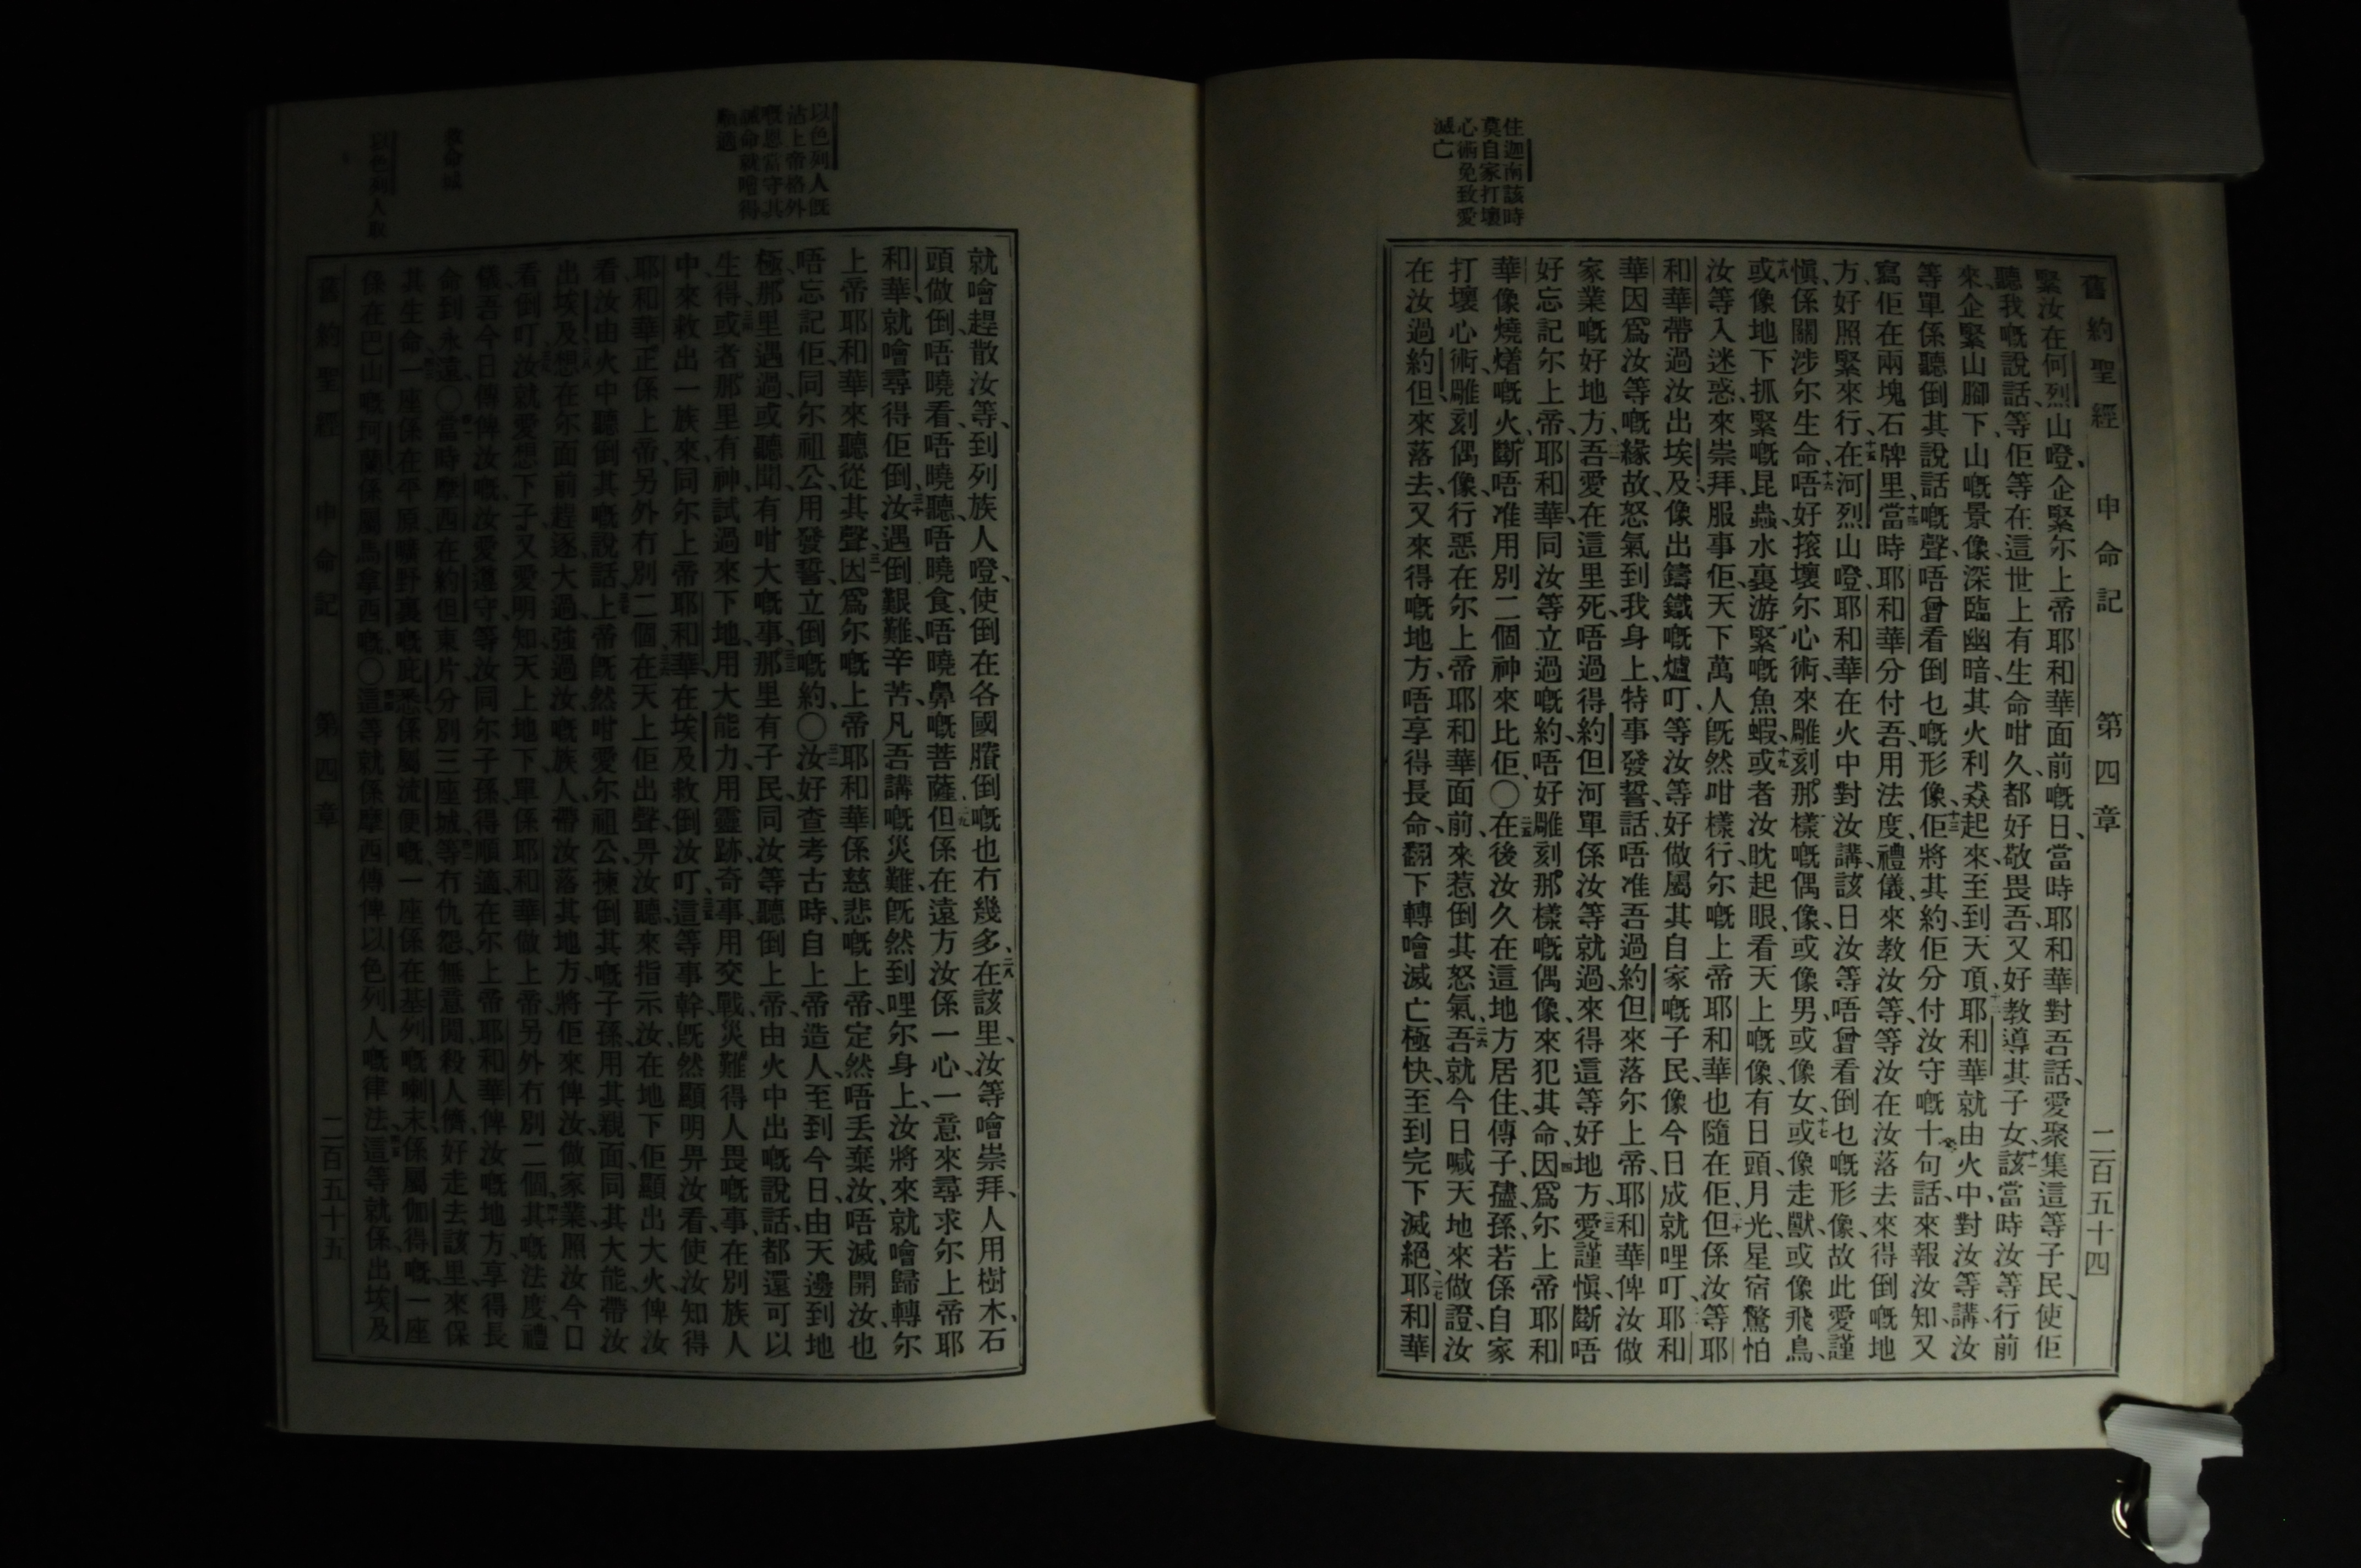 舊約聖經 申命記 第四章 二百五十四
住迦南該時
莫自家打壞
心術免致愛
滅亡
緊汝在何烈山嶝、企緊尔上帝耶和華面前嘅日、當時耶和華對吾話、愛聚集這等子民、使佢
聽我嘅說話、等佢等在這世上有生命咁久、都好敬畏吾、又好教導其子女、十一該當時汝等行前
來、企緊山腳下、山嘅景像、深臨幽暗、其火利猋起來、至到天頂、十二耶和華就由火中、對汝等講、汝
等單係聽倒其說話嘅聲、唔曾看倒乜嘅形像、十三佢將其約、佢分付汝守嘅十句話、來報汝知、又
寫佢在兩塊石牌里、十四當時耶和華分付吾、用法度、禮儀、來教汝等、等汝在汝落去來得倒嘅地
方、好照緊來行、十五在河烈山嶝、耶和華在火中對汝講、該日汝等唔曾看倒乜嘅形像、故此愛謹
愼、係關涉尔生命、十六唔好㨰壞尔心術、來雕刻那樣嘅偶像、或像男、或像女、十七或像走獸、或像飛鳥、
十八或像地下抓緊嘅昆蟲、水裏游緊嘅魚蝦、十九或者汝眈起眼、看天上嘅像、有日頭、月光、星宿、驚怕
汝等入迷惑、來崇拜、服事佢、天下萬人既然咁樣行、尔嘅上帝耶和華也隨在佢、二十但係汝等、耶
和華帶過汝出埃及、像出鑄鐵嘅爐叮、等汝等好做屬其自家嘅子民、像今日成就哩叮、二一耶和
華因爲汝等嘅緣故、怒氣到我身上、特事發誓、話唔准吾過約但、來落尔上帝、耶和華俾汝做
家業嘅好地方、二二吾愛在這里死、唔過得約但河、單係汝等就過、來得這等好地方、二三愛謹愼、斷唔
好忘記尔上帝、耶和華、同汝等立過嘅約、唔好雕刻那樣嘅偶像、來犯其命、二四因爲尔上帝耶和
華、像燒㸅嘅火、斷唔准用別二個神來比佢、〇二五在後汝久在這地方居住、傳子𡥧孫、若係自家
打壞心術、雕刻偶像、行惡在尔上帝耶和華面前、來惹倒其怒氣、二六吾就今日喊天地來做證、汝
在汝過約但、來落去、又來得嘅地方、唔享得長命、翻下轉噲滅亡極快、至到完下滅絕、二七耶和華
以色列人既
沾上帝格外
嘅恩當守其
誡命就噲得
順適
救命城
以色列人取
就噲趕散汝等、到列族人嶝、使倒在各國賸倒嘅也冇幾多、二八在該里、汝等噲崇拜、人用樹木、石
頭做倒、唔曉看、唔曉聽、唔曉食、唔曉鼻嘅菩薩、二九但係在遠方、汝係一心、一意來尋求尔上帝耶
和華、就噲尋得佢倒、三十汝遇倒艱難、辛苦、凡吾講嘅災難、既然到哩尔身上、汝將來就噲歸轉尔
上帝耶和華、來聽從其聲、三一因爲尔嘅上帝耶和華、係慈悲嘅上帝、定然唔丢棄汝、唔滅開汝、也
唔忘記佢同尔祖公、用發誓立倒嘅約、〇三二汝好查考古時、自上帝造人、至到今日、由天邊到地
極、那里遇過、或聽聞有咁大嘅事、三三那里有子民、同汝等聽倒上帝由火中出嘅說話、都還可以
生得、三四或者那里有神試過來下地、用大能力、用靈跡、奇事、用交戰、災難、得人畏嘅事、在別族人
中、來救出一族來、同尔上帝耶和華在埃及救倒汝叮、三五這等事幹、既然顯明畀汝看、使汝知得
耶和華正係上帝、另外冇別二個、三六在天上佢出聲、畀汝聽、來指示汝、在地下佢顯出大火、俾汝
看、汝由火中聽倒其嘅說話、三七上帝既然咁愛尔祖公、揀倒其嘅子孫、用其親面、同其大能、帶汝
出埃及、三八想在尔面前趕逐大過強過汝嘅族人、帶汝落其地方、將佢來俾汝做家業、照汝今日
看倒叮、三九汝就愛想下子、又愛明知、天上地下、單係耶和華做上帝、另外冇別二個、四十其嘅法度、禮
儀、吾今日傳俾汝嘅、汝愛遵守、等汝同尔子孫、得順適、在尔上帝耶和華俾汝嘅地方、享得長
命、到永遠、〇四一當時摩西在約但東片、分別三座城、四二等冇仇怨、無意間殺人儕、好走去該里、來保
其生命、四三一座係在平原曠野裏嘅庇悉、係屬流便嘅、一座係在基列嘅喇末、係屬伽得嘅、一座
係在巴山嘅坷蘭、係屬馬拿西嘅、〇四四這等就係摩西傳俾以色列人嘅律法、四五這等就係出埃及
舊約聖經 申命記 第四章 二百五十五